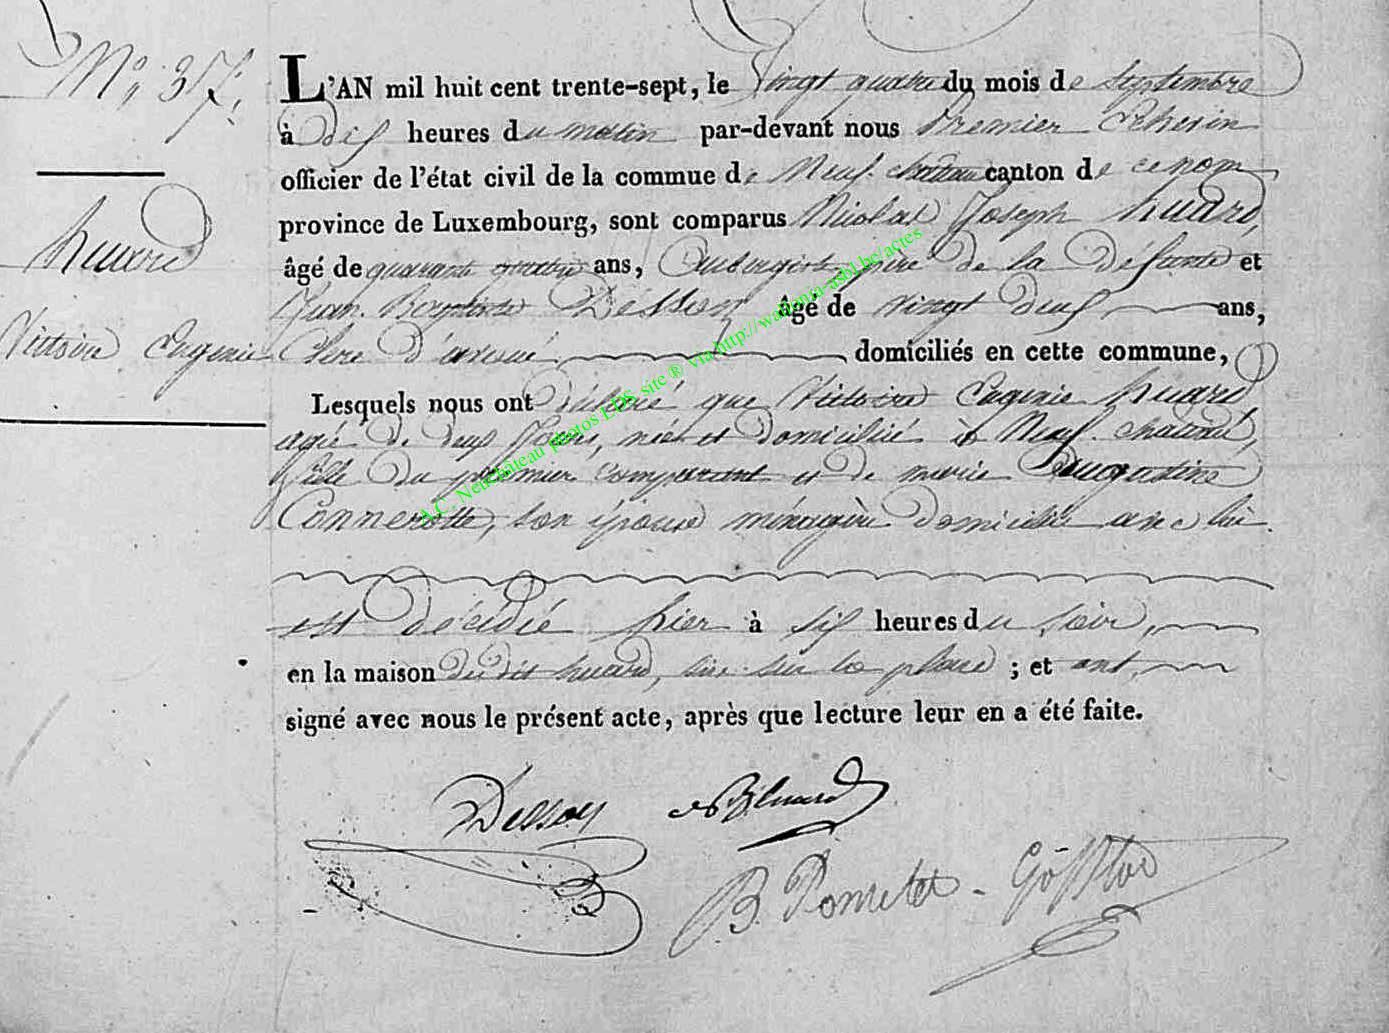 N° 37.
huard
Victoire Eugenie
L'AN mil huit cent trente-sept, le Vingt quatre du mois de Septembre
à dix heures du matin par-devant nous Premier Echevin
officier de l'état civil de la commue de Neuf-chateau canton de ce nom
province de Luxembourg, sont comparus Nicolas Joseph huard,
âgé de quarante quatre ans, Aubergiste, père de la défunte et
Jean Baptiste Dessoy âgé de vingt deux ans,
Clerc d'avoué domiciliés en cette commune,
Lesquels nous ont déclaré que Victoire Eugenie huard,
agée de deux jours, née et domiciliée à Neuf-chateau,
fille du premier comparant et de marie augustine
Connerotte, son épouse ménagère domiciliée avec lui.
est décédée hier à six heures du soir,
en la maison du dit huard, sise sur la place ; et ont
signé avec nous le présent acte, après que lecture leur en a été faite.
Dessoy huard
B.
A.C. Neufchâteau photos LDS site ® via http://wallonia-asbl.be/actes